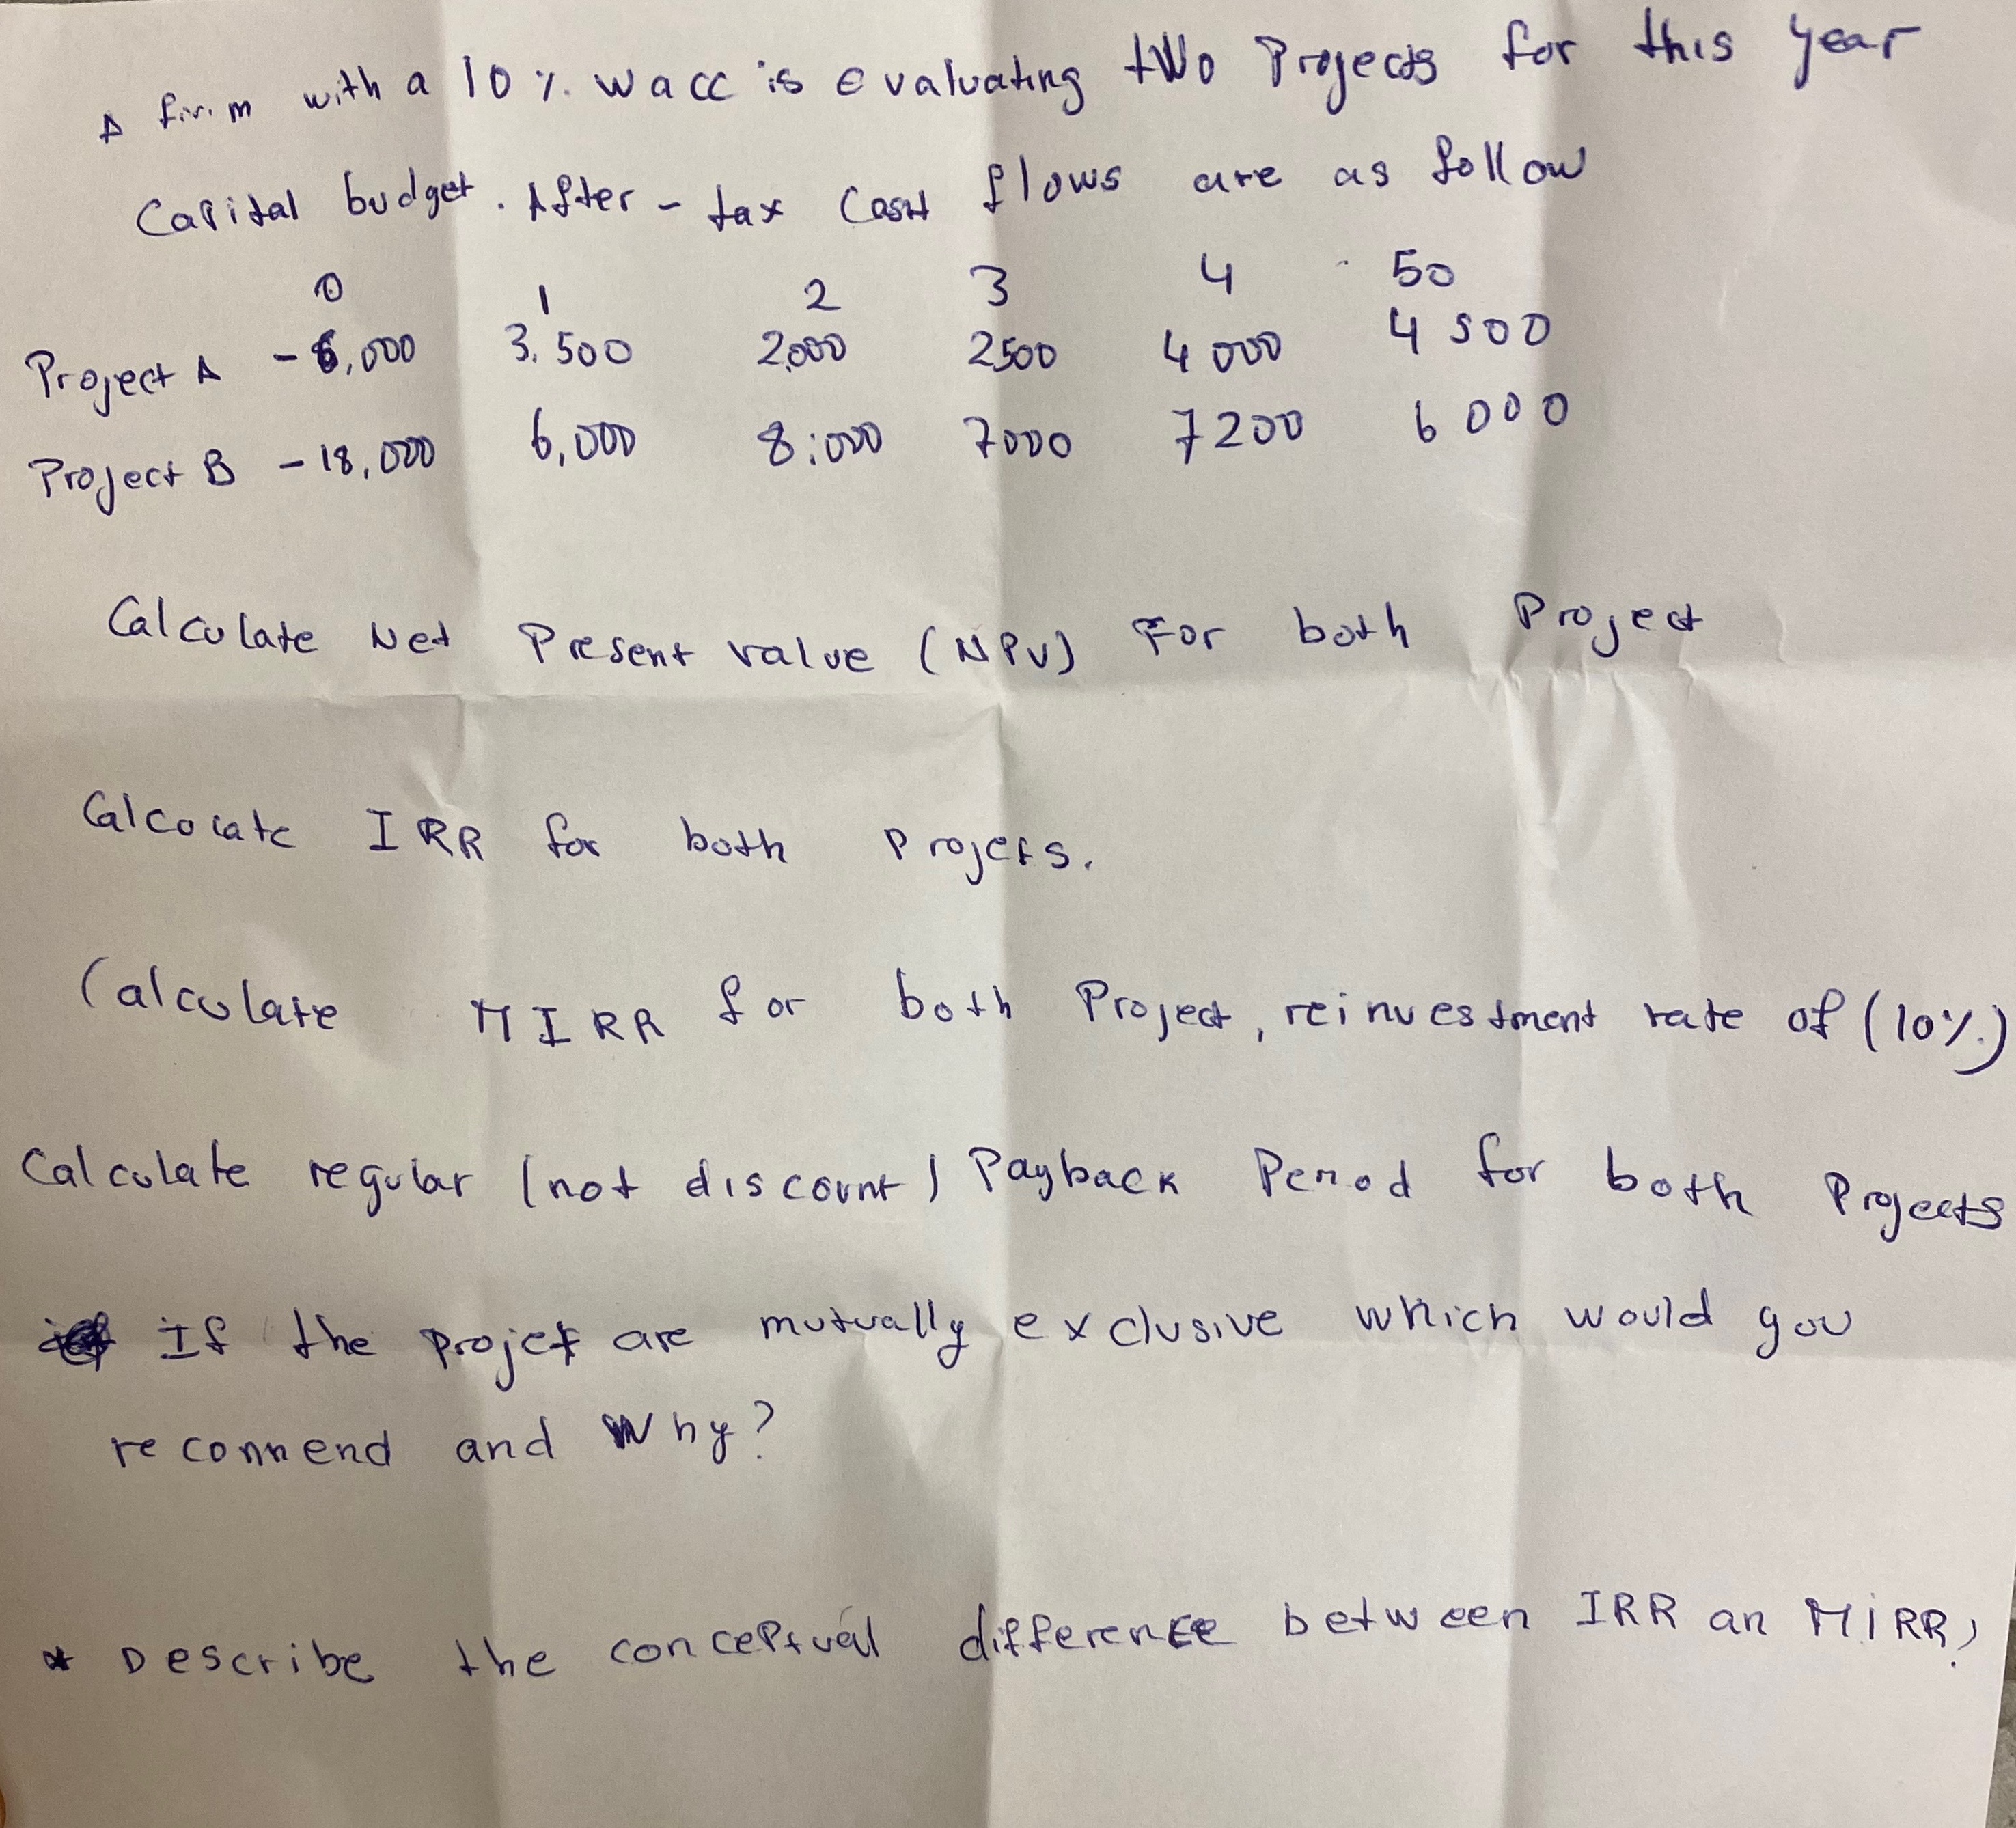 A firm with a 10% wacc is evaluating two Projects for this year
Capital budget. After-tax Cash flows are as follow
0 1 2 3 4 50
Project A -6,000 3,500 2,000 2500 4000 4500
Project B -18,000 6,000 8,000 7000 7200 6000
Calculate Net Present value (NPV) For both Project
Calcolate IRR for both Projets.
Calculate MIRR for both Project, reinvestment rate of (10%)
Calculate regular (not discount) Payback Period for both Projects
If the projet are mutually exclusive which would you
reconnend and Why?
* Describe the conceptual difference between IRR an MIRR?